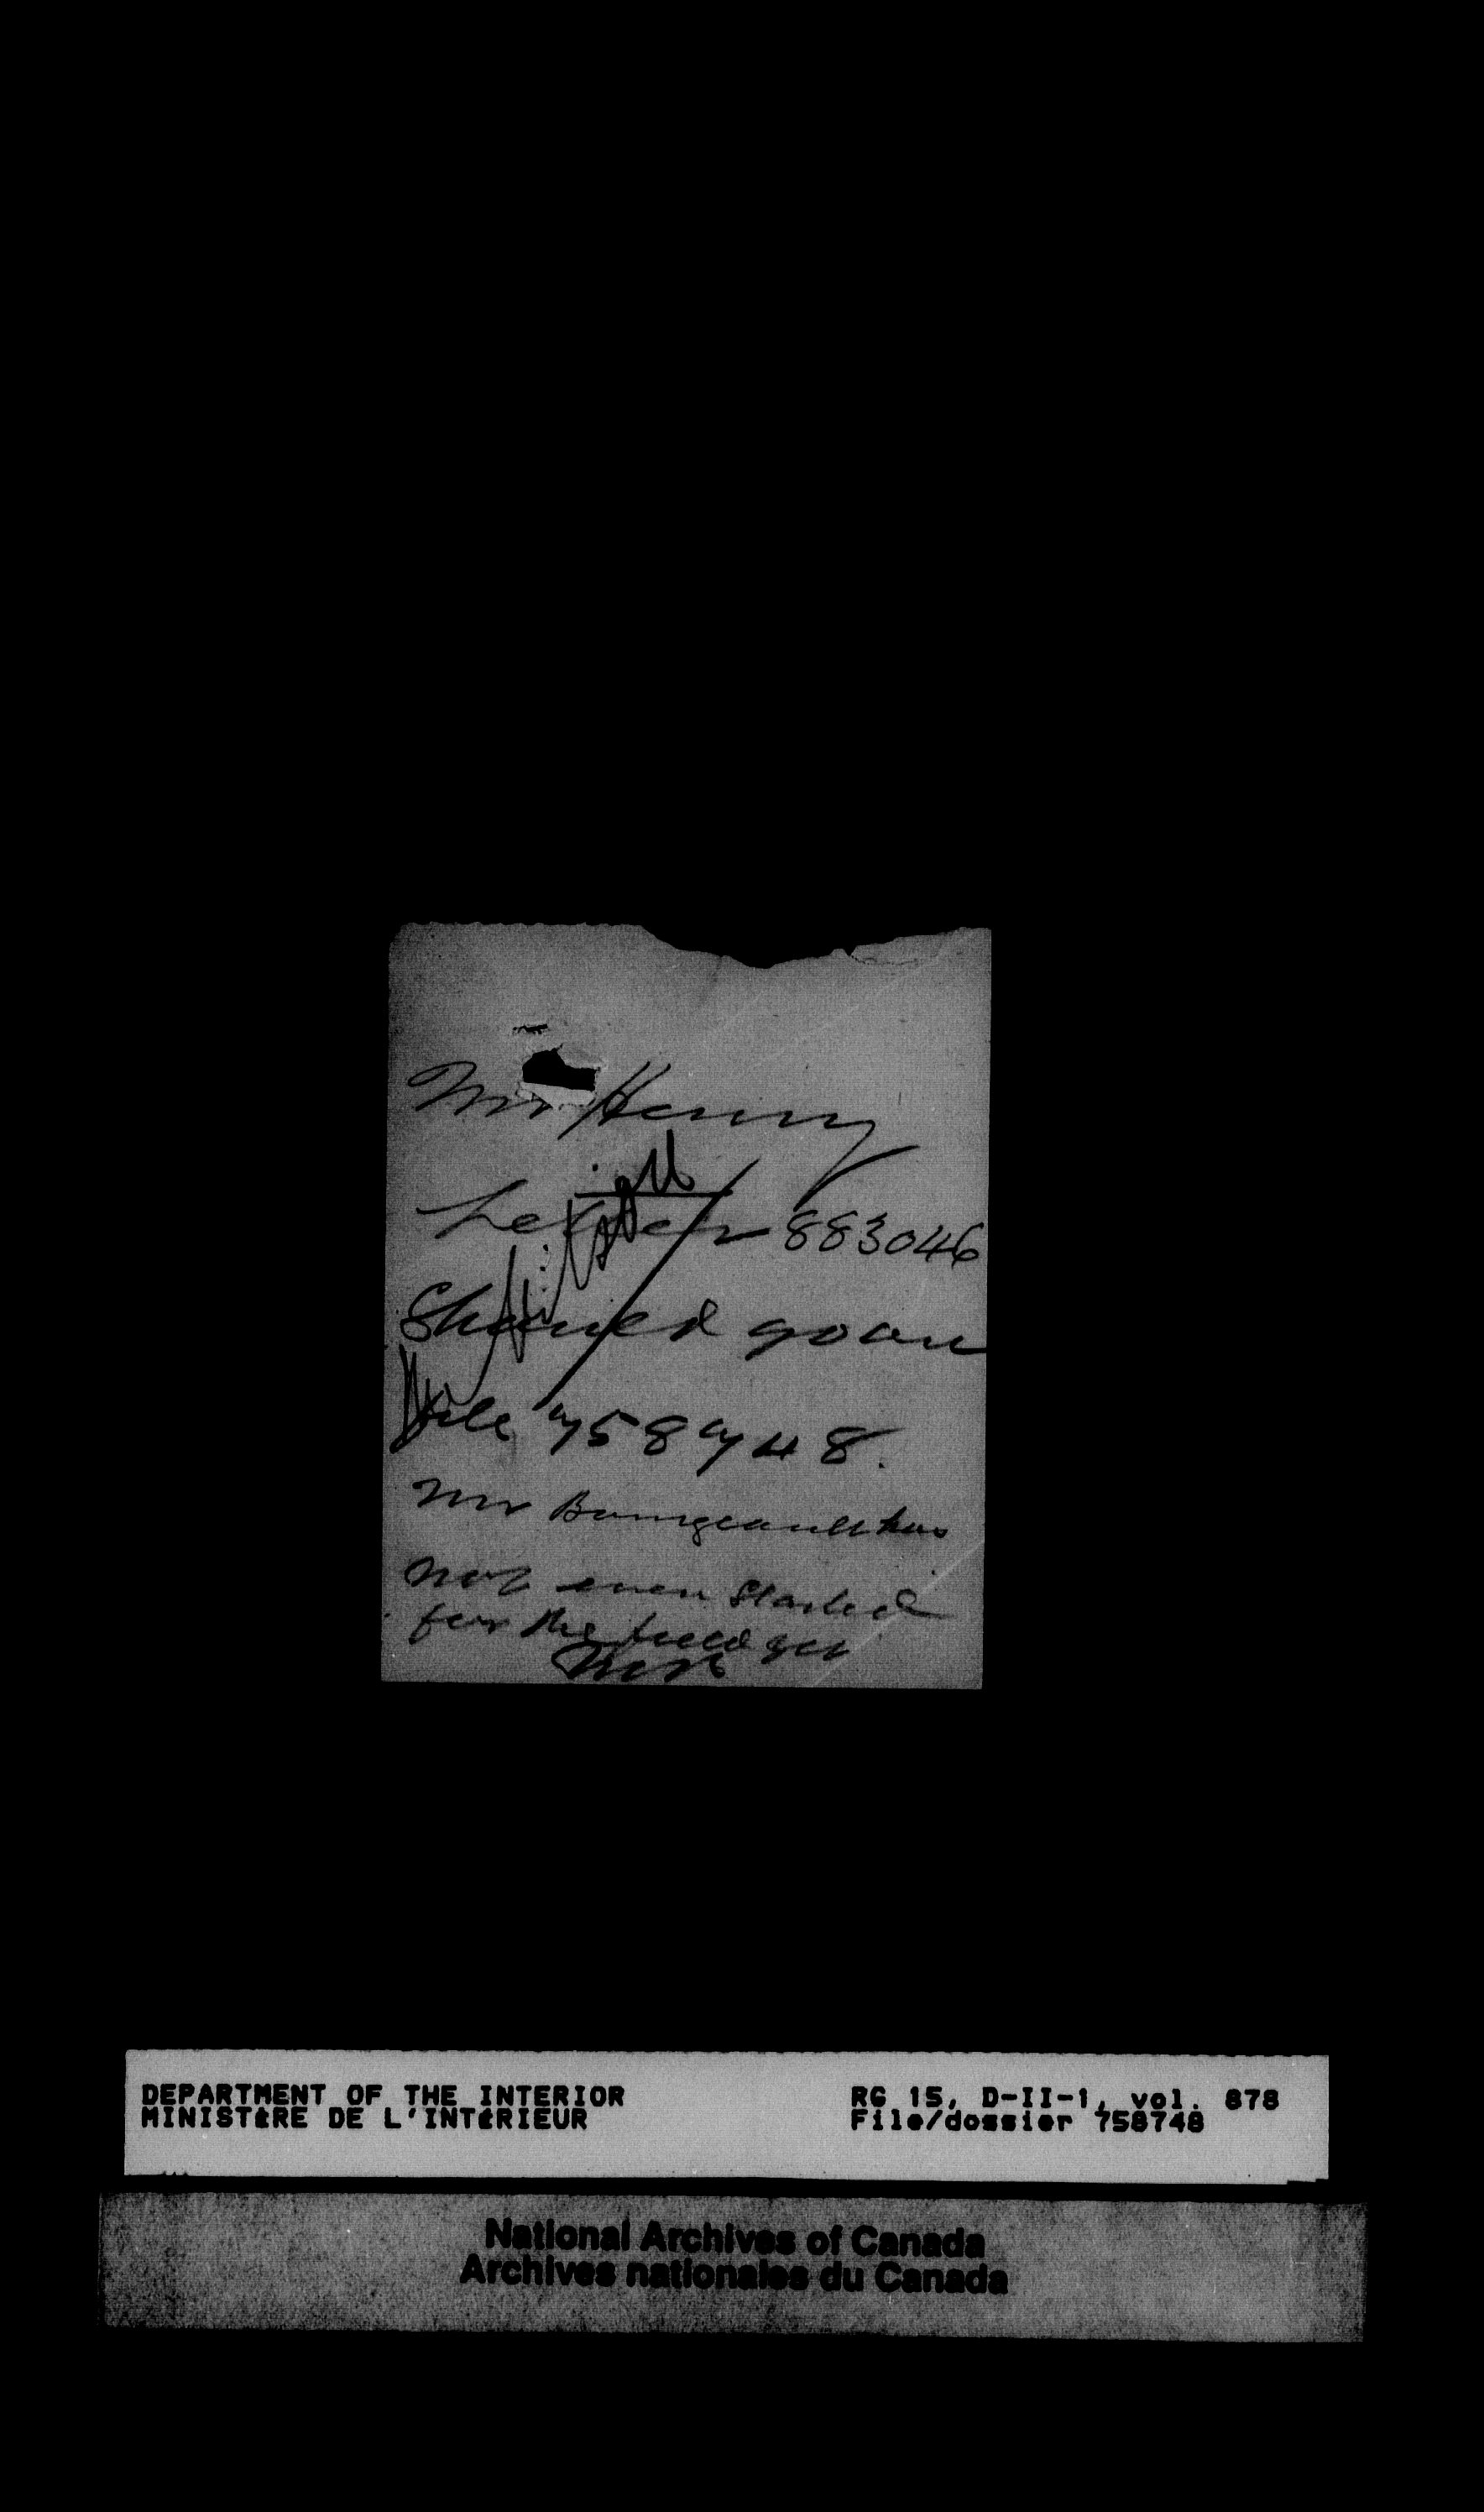 Mr Henry
Letter 883046
Should go on
File 758748.
Mr Bourgeault has
not even started
for the field yet
DEPARTMENT OF THE INTERIOR RG 15, D-II-1, vol. 878
MINISTÈRE DE L'INTÉRIEUR File/dossier 758748
National Archives of Canada
Archives nationales du Canada